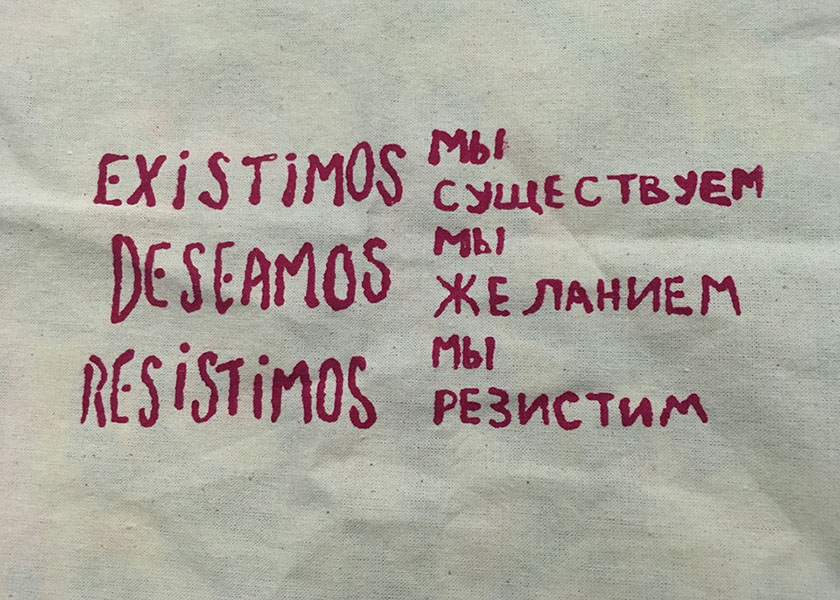 EXiSTiMOS
DESEAMOS
RESiSTiMOS
МЫ
СУЩЕСТВУЕМ
МЫ
ЖЕЛАНИЕМ
МЫ
РЕЗИСТИМ